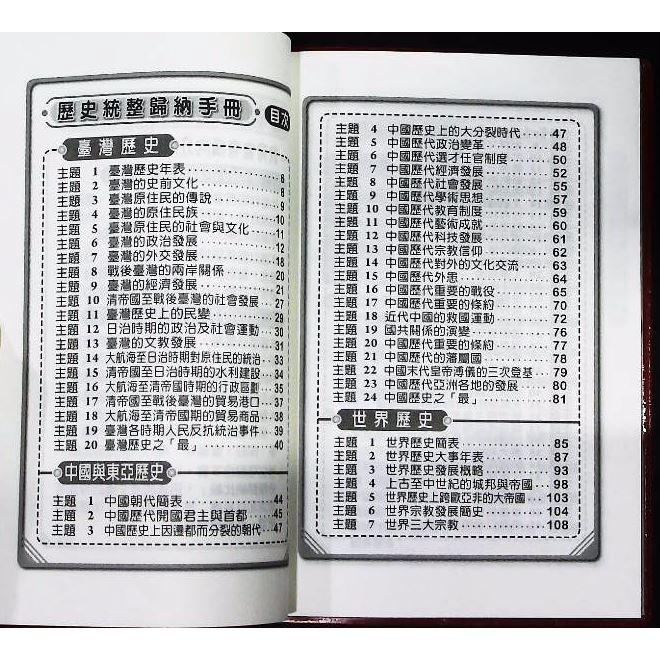 歷史統整歸納手冊 目次
臺灣歷史
主題 1 臺灣歷史年表 6
主題 2 臺灣的史前文化 8
主題 3 臺灣原住民的傳說 9
主題 4 臺灣的原住民族 10
主題 5 臺灣原住民的社會與文化 11
主題 6 臺灣的政治發展 12
主題 7 臺灣的外交發展 18
主題 8 戰後臺灣的兩岸關係 20
主題 9 臺灣的經濟發展 21
主題 10 清帝國至戰後臺灣的社會發展 27
主題 11 臺灣歷史上的民變 29
主題 12 日治時期的政治及社會運動 30
主題 13 臺灣的文教發展 31
主題 14 大航海至日治時期對原住民的統治 33
主題 15 清帝國至日治時期的水利建設 34
主題 16 大航海至清帝國時期的行政區劃 35
主題 17 清帝國至戰後臺灣的貿易港口 37
主題 18 大航海至清帝國期的貿易商品 38
主題 19 臺灣各時期人民反抗統治事件 39
主題 20 臺灣歷史之「最」 40
中國與東亞歷史
主題 1 中國朝代簡表 44
主題 2 中國歷代開國君主與首都 45
主題 3 中國歷史上因遷都而分裂的朝代 47
主題 4 中國歷史上的大分裂時代 47
主題 5 中國歷代政治變革 48
主題 6 中國歷代選才任官制度 50
主題 7 中國歷代經濟發展 52
主題 8 中國歷代社會發展 55
主題 9 中國歷代學術思想 57
主題 10 中國歷代教育制度 59
主題 11 中國歷代藝術成就 60
主題 12 中國歷代科技發展 61
主題 13 中國歷代宗教信仰 62
主題 14 中國歷代對外的文化交流 63
主題 15 中國歷代外患 64
主題 16 中國歷代重要的戰役 65
主題 17 中國歷代重要的條約 70
主題 18 近代中國的救國運動 72
主題 19 國共關係的演變 76
主題 20 中國歷代重要的條約 77
主題 21 中國歷代的藩屬國 78
主題 22 中國末代皇帝溥儀的三次登基 79
主題 23 中國歷代亞洲各地的發展 80
主題 24 中國歷史之「最」 81
世界歷史
主題 1 世界歷史簡表 85
主題 2 世界歷史大事年表 87
主題 3 世界歷史發展概略 93
主題 4 上古至中世紀的城邦與帝國 98
主題 5 世界歷史上跨歐亞非的大帝國 103
主題 6 世界宗教發展簡史 104
主題 7 世界三大宗教 108